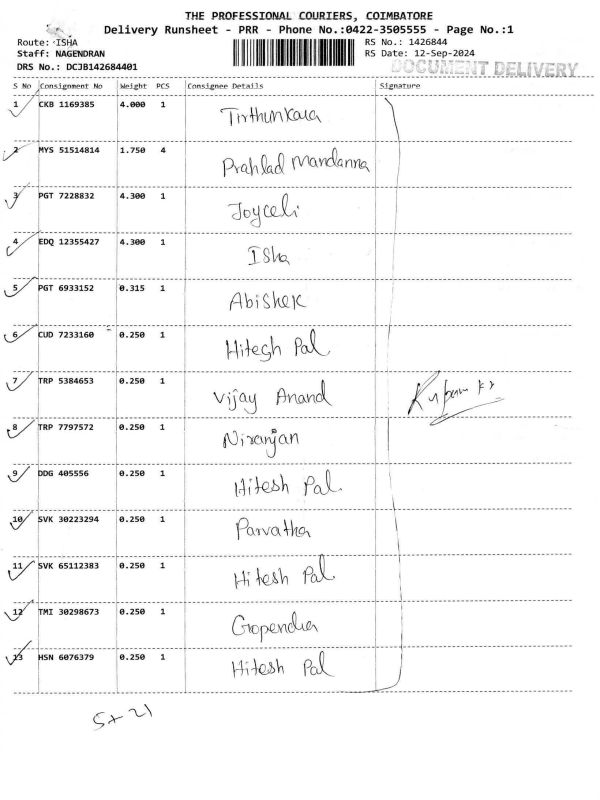 THE PROFESSIONAL COURIERS, COIMBATORE
Delivery Runsheet - PRR - Phone No.:0422-3505555 - Page No.:1
Route: ISHA RS No.: 1426844
Staff: NAGENDRAN RS Date: 12-Sep-2024
DRS No.: DCJB142684401 DOCUMENT DELIVERY
S No Consignment No Weight PCS Consignee Details Signature
1 CKB 1169385 4.000 1 Tirthunkara
2 MYS 51514814 1.750 4 Prahlad Mandanna
3 PGT 7228832 4.300 1 Joyceli
4 EDQ 12355427 4.300 1 Isha
5 PGT 6933152 0.315 1 Abishek
6 CUD 7233160 0.250 1 Hitesh Pal
7 TRP 5384653 0.250 1 Vijay Anand
8 TRP 7797572 0.250 1 Niranjan
9 DDG 405556 0.250 1 Hitesh Pal
10 SVK 30223294 0.250 1 Parvatha
11 SVK 65112383 0.250 1 Hitesh Pal
12 TMI 30298673 0.250 1 Gopendra
13 HSN 6076379 0.250 1 Hitesh Pal